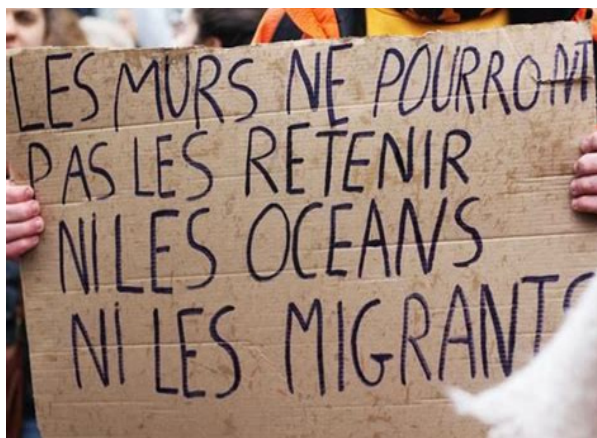 LES MURS NE POURRONT
PAS LES RETENIR
NI LES OCEANS
NI LES MIGRANTS